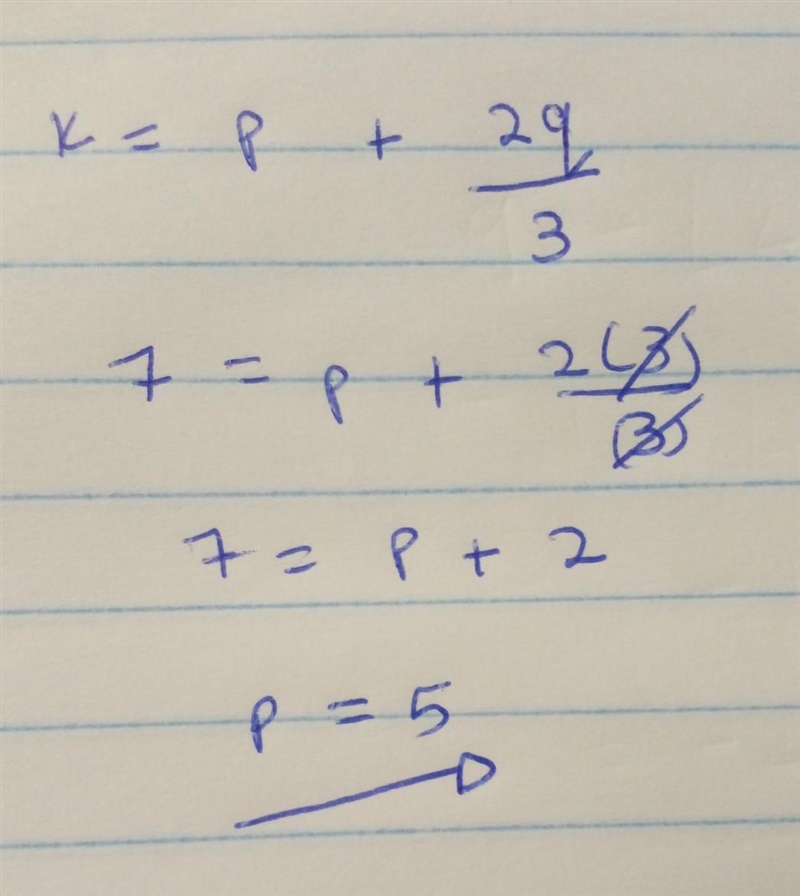 k = p + 2q/3
7 = p + 2(3)/(3)
7 = p + 2
p = 5